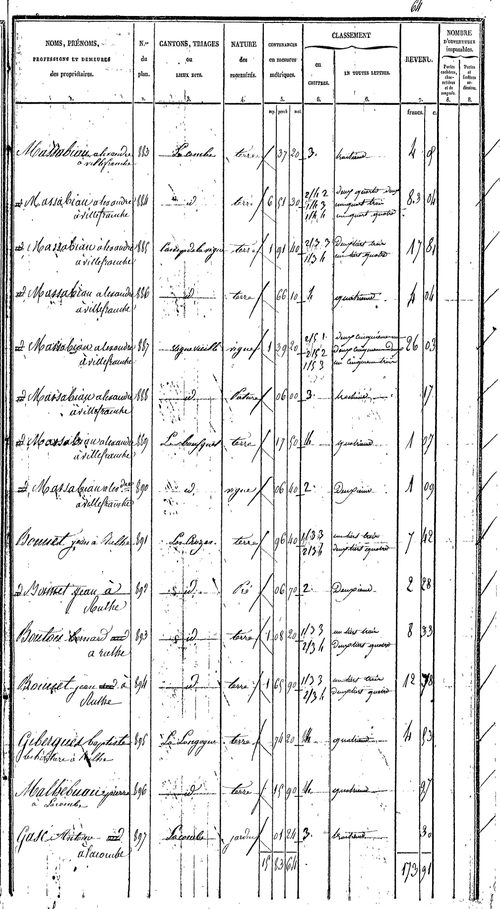 64
NOMS, PRÉNOMS,
PROFESSIONS ET DEMEURES
des propriétaires.
N.os
du
plan.
CANTONS, TRIAGES
ou
LIEUX DITS.
NATURE
des
CONTENANCES
en mesures
métriques.
CLASSEMENT
en
CHIFFRES.
EN TOUTES LETTRES.
REVENU.
NOMBRE
D'OUVERTURES
imposables.
1. 2. 3. 4. 5. 6. 6. 7. 8. 8.
francs. c.
Massabiau alexandre 883 Lacombe terre 37 20 3. troisième 4 09
à villefranche
id Massabiau alexandre 884 id terre 6 51 30 2/4 2 deux quarts deux 83 04
à villefranche 1/4 3 un quart trois
1/4 4 un quart quatre
id Massabiau alexandre 885 terre 1 91 40 2/3 3 deux tiers trois 17 81
à villefranche 1/3 4 un tiers quatre
id Massabiau alexandre 886 id terre 66 10 4 quatrième 4 04
à villefranche
id Massabiau alexandre 887 vigne vieille vigne 1 39 20 2/5 1. deux cinquièmes un 26 03
à villefranche 2/5 2 deux cinquièmes deux
1/5 3 un cinquième trois
id Massabiau alexandre 888 id Pature 06 00 3. troisième 17
à villefranche
id Massabiau alexandre 889 terre 17 50 4. quatrième 1 07
à villefranche
id Massabiau alexandre 890 id vigne 06 40 2. Deuxième 1 09
à villefranche
Bounet jean à Ruthe 891 terre 96 40 1/3 3 un tiers trois 7 42
2/3 4 deux tiers quatre
id Bounet jean à 892 id Pré 06 70 2. Deuxième 2 28
Ruthe
Boutou bernard 893 id terre 1 08 20 1/3 3 un tiers trois 8 33
à ruthe 2/3 4 deux tiers quatre
Bounet jean à 894 id terre 1 65 90 1/3 3 un tiers trois 12 78
Ruthe 2/3 4 deux tiers quatre
Gibergues baptiste 895 La Longagne terre 74 20 4. quatrième 4 53
à Ruthe
pierre 896 id terre 15 90 4. quatrième 97
à Lacombe
Gasc Antoine 897 Lacombe jardin 01 24 3. troisième 30
à lacombe
15 83 64 173 91